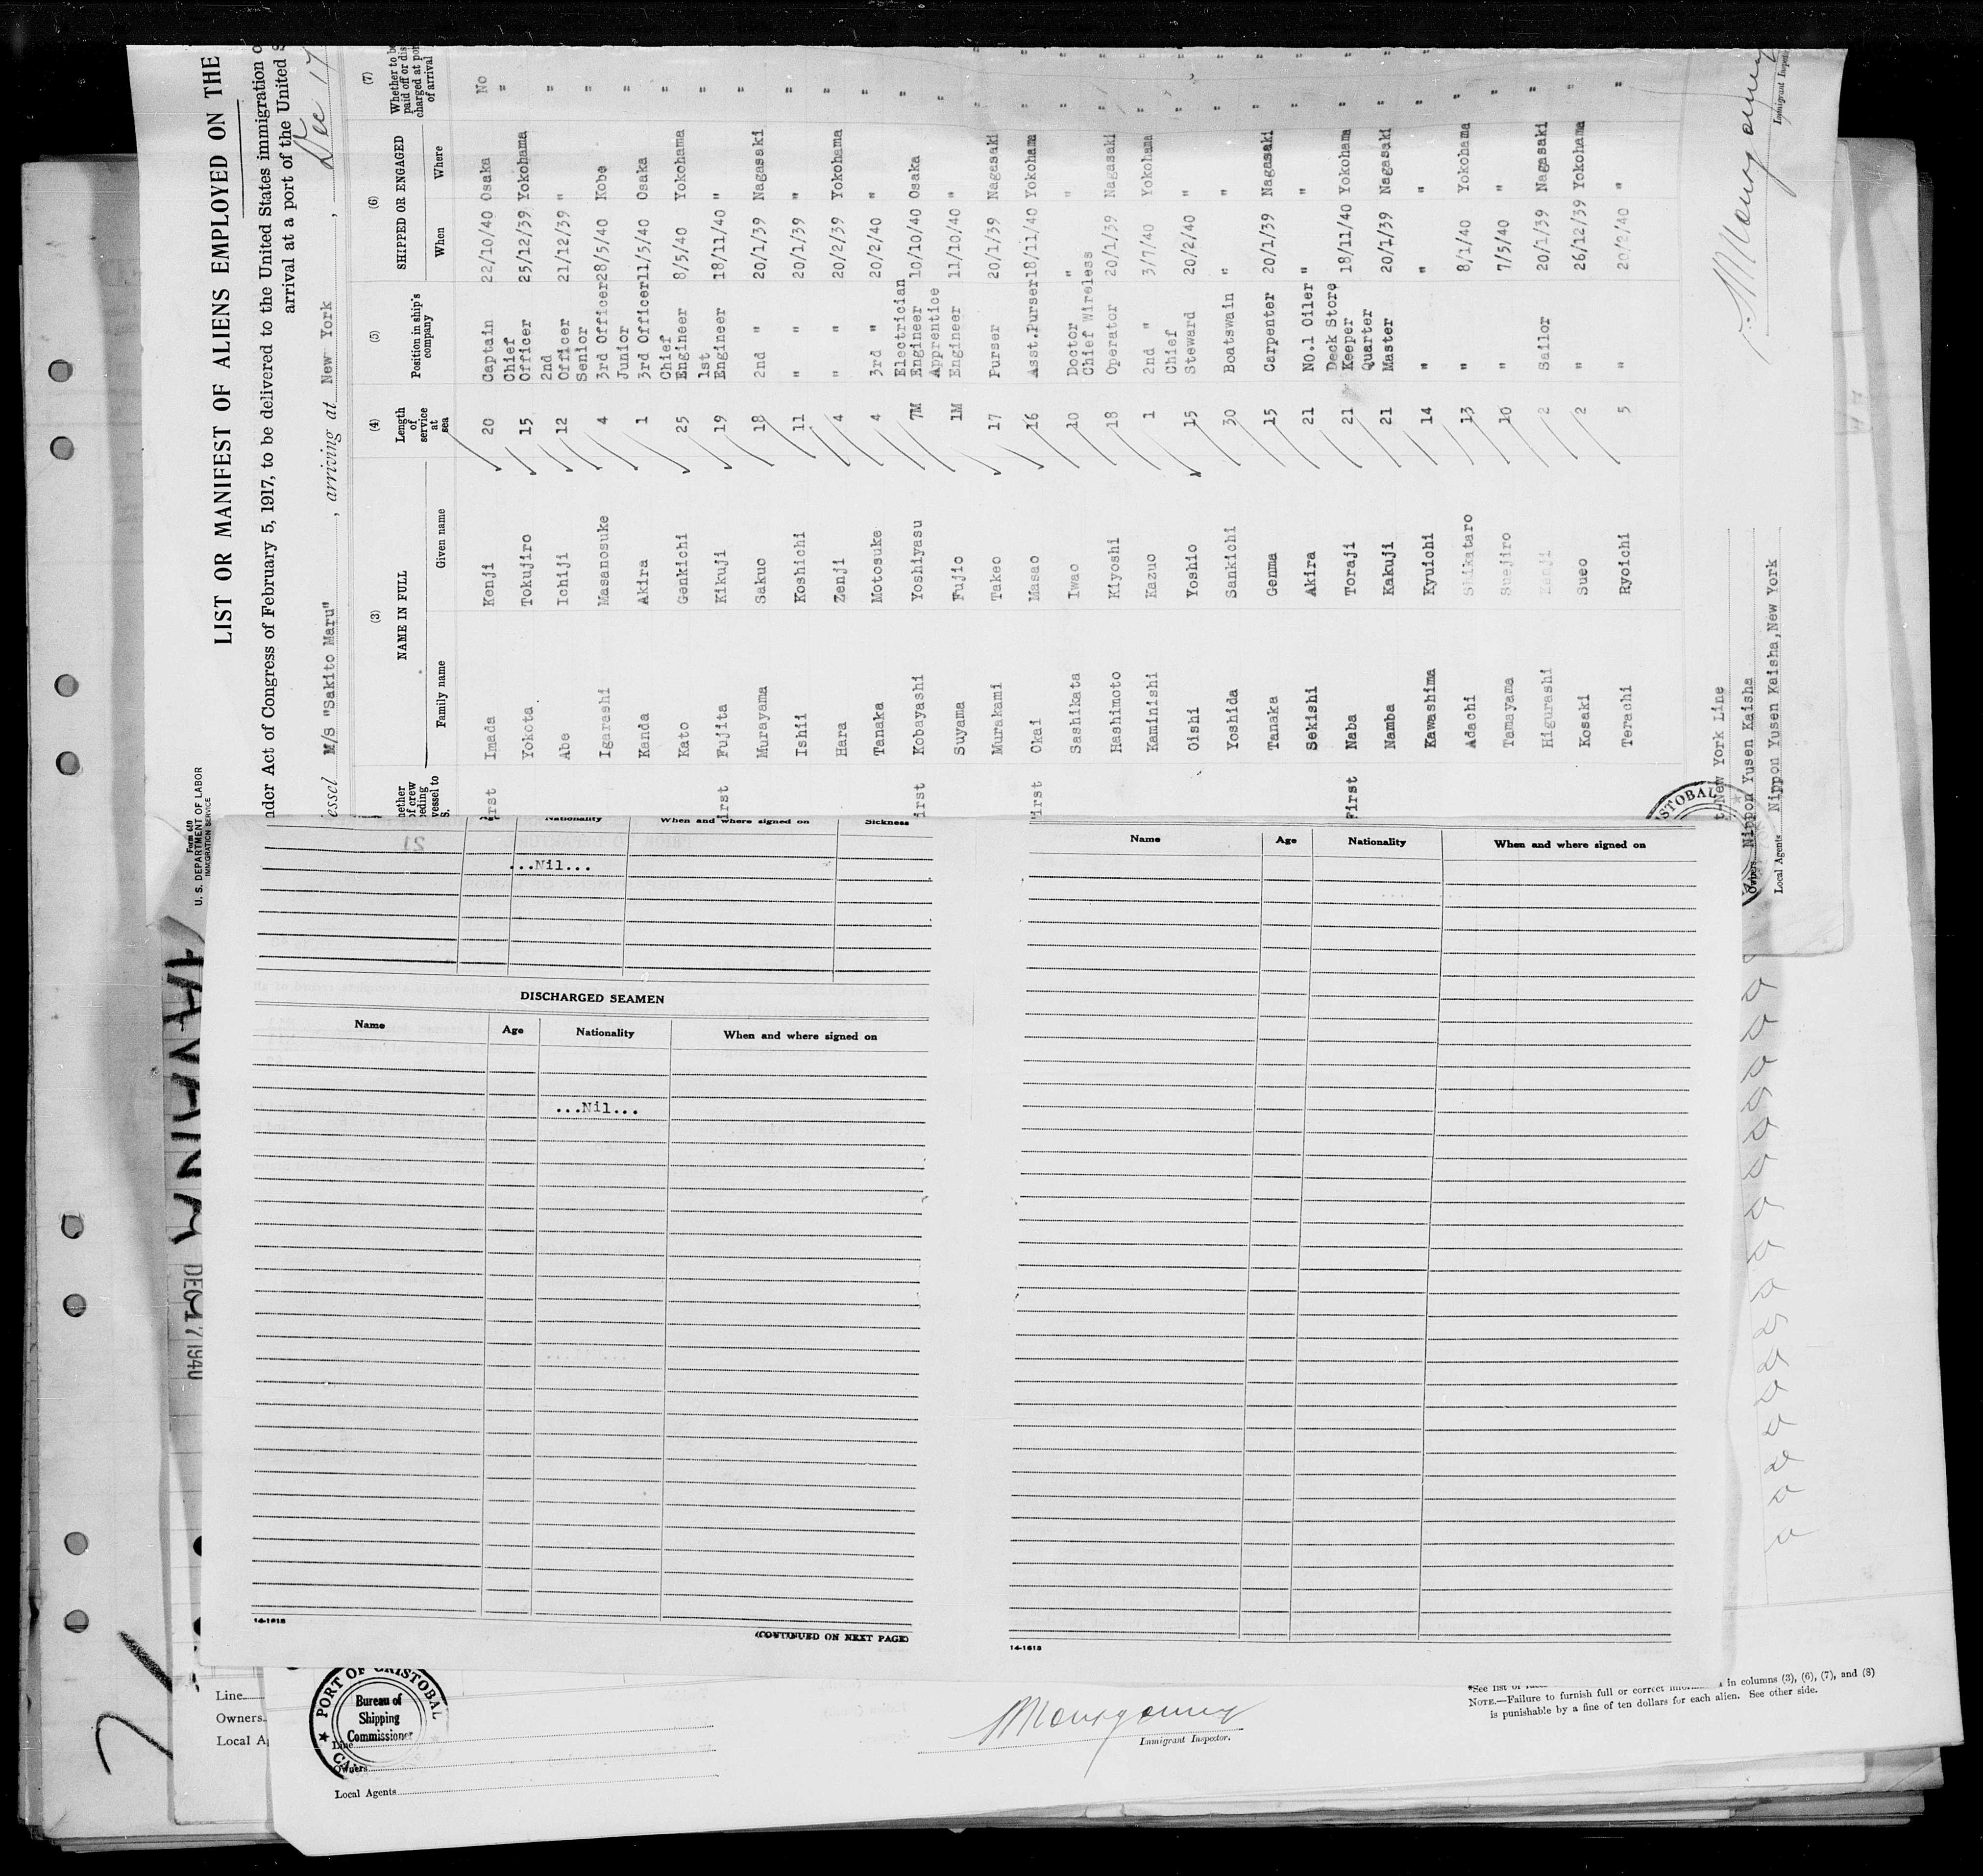 Form 680
U. S. DEPARTMENT OF LABOR
IMMIGRATION SERVICE
LIST OR MANIFEST OF ALIENS EMPLOYED ON THE
nder Act of Congress of February 5, 1917, to be delivered to the United States immigration o
arrival at a port of the United S
essel M/S "Sakito Maru" , arriving at New York , Dec 17
(3) (4) (5) (6) (7)
NAME IN FULL Length of service at sea Position in ship's company SHIPPED OR ENGAGED Whether to be paid off or dis charged at por of arrival
Family name Given name When Where
rst Imada Kenji 20 Captain 22/10/40 Osaka No
Yokota Tokujiro 15 Chief Officer 25/12/39 Yokohama "
Abe Ichiji 12 2nd Officer 21/12/39 " "
Igarashi Masanosuke 4 Senior 3rd Officer 28/5/40 Kobe "
Kanda Akira 1 Junior 3rd Officer 11/5/40 Osaka "
Kato Genkichi 25 Chief Engineer 8/5/40 Yokohama "
irst Fujita Kikuji 19 1st Engineer 18/11/40 " "
Murayama Sakuo 18 2nd " 20/1/39 Nagasaki "
Ishii Koshichi 11 " 20/1/39 " "
Hara Zenji 4 " 20/2/39 Yokohama "
Tanaka Motosuke 4 3rd " 20/2/40 " "
irst Kobayashi Yoshiyasu 7M Electrician Engineer 10/10/40 Osaka "
Suyama Fujio 1M Apprentice Engineer 11/10/40 " "
Murakami Takeo 17 Purser 20/1/39 Nagasaki "
irst Okai Masao 16 Asst.Purser 18/11/40 Yokohama "
Sashikata Iwao 10 Doctor " " "
Hashimoto Kiyoshi 18 Chief Wireless Operator 20/1/39 Nagasaki "
Kaminishi Kazuo 1 2nd " 3/7/40 Yokohama "
Oishi Yoshio 15 Chief Steward 20/2/40 " "
Yoshida Sankichi 30 Boatswain " " "
Tanaka Genma 15 Carpenter 20/1/39 Nagasaki "
Sekishi Akira 21 NO.1 Oiler " " "
First Naba Toraji 21 Deck Store Keeper 18/11/40 Yokohama "
Namba Kakuji 21 Quarter Master 20/1/39 Nagasaki "
Kawashima Kyuichi 14 " " " "
Adachi Shikataro 13 " 8/1/40 Yokohama "
Tamayama Suejiro 10 " 7/5/40 " "
Higurashi Kenji 2 Sailor 20/1/39 Nagasaki "
Kosaki Sueo 2 " 26/12/39 Yokohama "
Terachi Ryoichi 5 " 20/2/40 " "
New York Line
Owners Nippon Yusen Kaisha
Local Agents Nippon Yusen Kaisha, New York
Immigrant Inspec
STOBAL
Age Nationality When and where signed on Sickness
...Nil...
DISCHARGED SEAMEN
Name Age Nationality When and where signed on
...Nil...
14-1618
(CONTINUED ON NEXT PAGE)
Name Age Nationality When and where signed on
14-1618
HAVANA
DEC 17 1940
Line
Owners
Local A
PORT OF CRISTOBAL
Bureau of
Shipping
Commissioner
Line
Owners
Local Agents
Montgomery
Immigrant Inspector.
*See list of
NOTE.—Failure to furnish full or correct in columns (3), (6), (7), and (8)
is punishable by a fine of ten dollars for each alien. See other side.